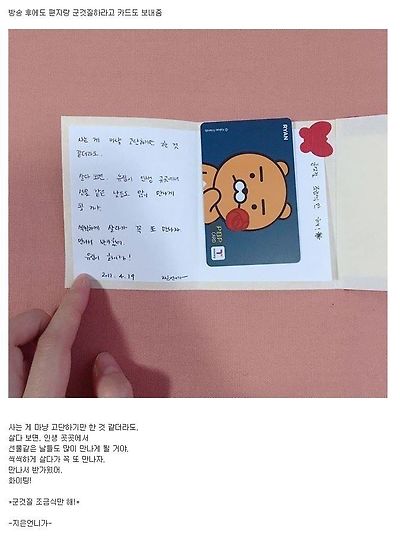 방송 후에도 편지랑 군것질하라고 카드도 보내줌
사는 게 마냥 고단하기만 한 것
같더라도.
살다 보면, 인생 곳곳에서
선물 같은 날들도 많이 만나게
될 거야.
씩씩하게 살다가 꼭 또 만나자.
만나서 반가웠어.
화이팅!
RYAN
© Kakao Friends
POP
CARD
T
군것질
조금씩만 해!
사는 게 마냥 고단하기만 한 것 같더라도.
살다 보면. 인생 곳곳에서
선물같은 날들도 많이 만나게 될 거야.
씩씩하게 살다가 꼭 또 만나자.
만나서 반가웠어.
화이팅!
*군것질 조금씩만 해!*
-지은언니가-